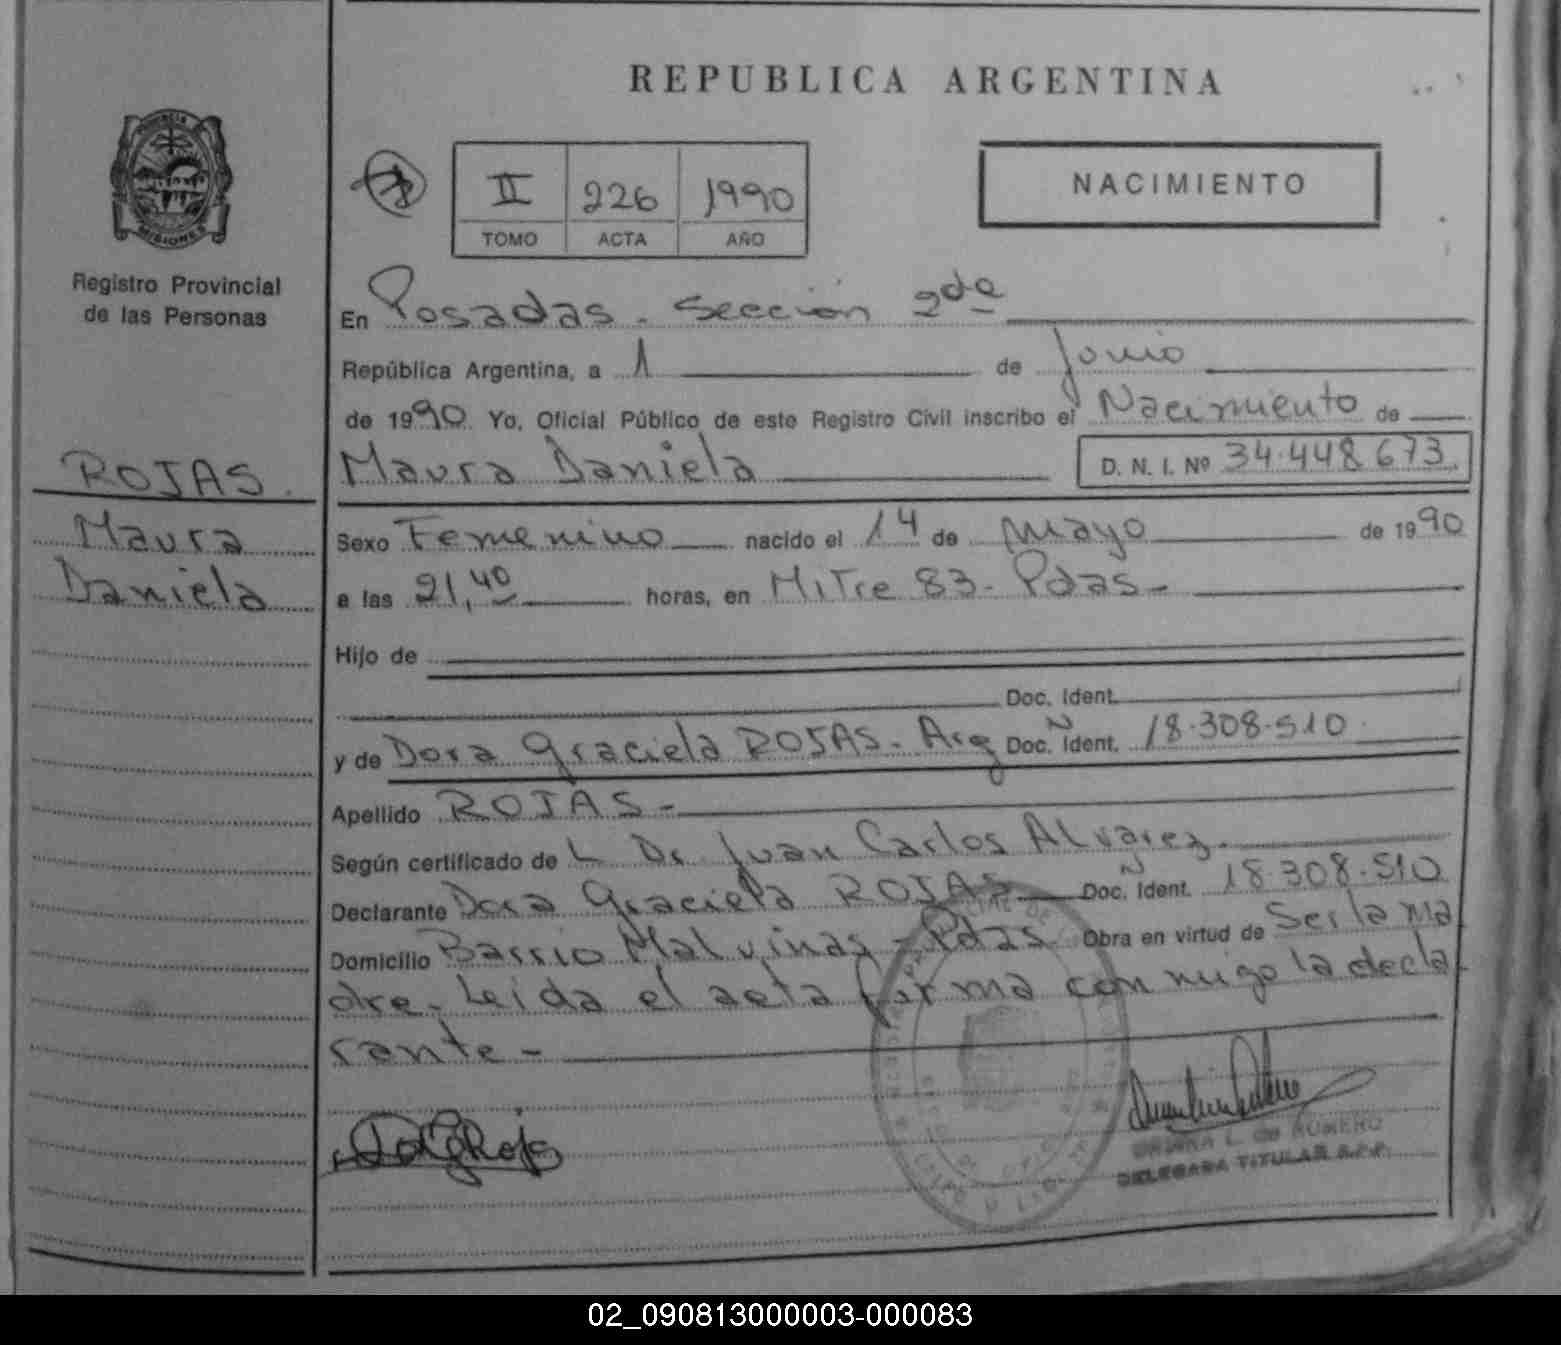 REPUBLICA ARGENTINA
NACIMIENTO
II 226 1990
TOMO ACTA AÑO
PROVINCIA
MISIONES
Registro Provincial
de las Personas
ROJAS.
Maura
Daniela
En Posadas - Sección 2da
República Argentina, a 1 de Junio
de 1990 Yo, Oficial Público de este Registro Civil inscribo el Nacimiento de
Maura Daniela D. N. I. Nº 34.448.673
Sexo Femenino nacido el 14 de mayo de 1990
a las 21,40 horas, en Mitre 83 - Pdas -
Hijo de
Doc. Ident.
y de Dora Graciela ROJAS - Arg Doc. N Ident. 18.308.510
Apellido ROJAS -
Según certificado de L Dr. Juan Carlos Alvarez.
Declarante Dora Graciela ROJAS Doc. N Ident. 18.308.510
Domicilio Barrio Malvinas - Pdas Obra en virtud de Ser la ma
dre - Leida el acta firma con migo la decla
rante -
DELEGADA TITULAR R.P.P.
02_090813000003-000083